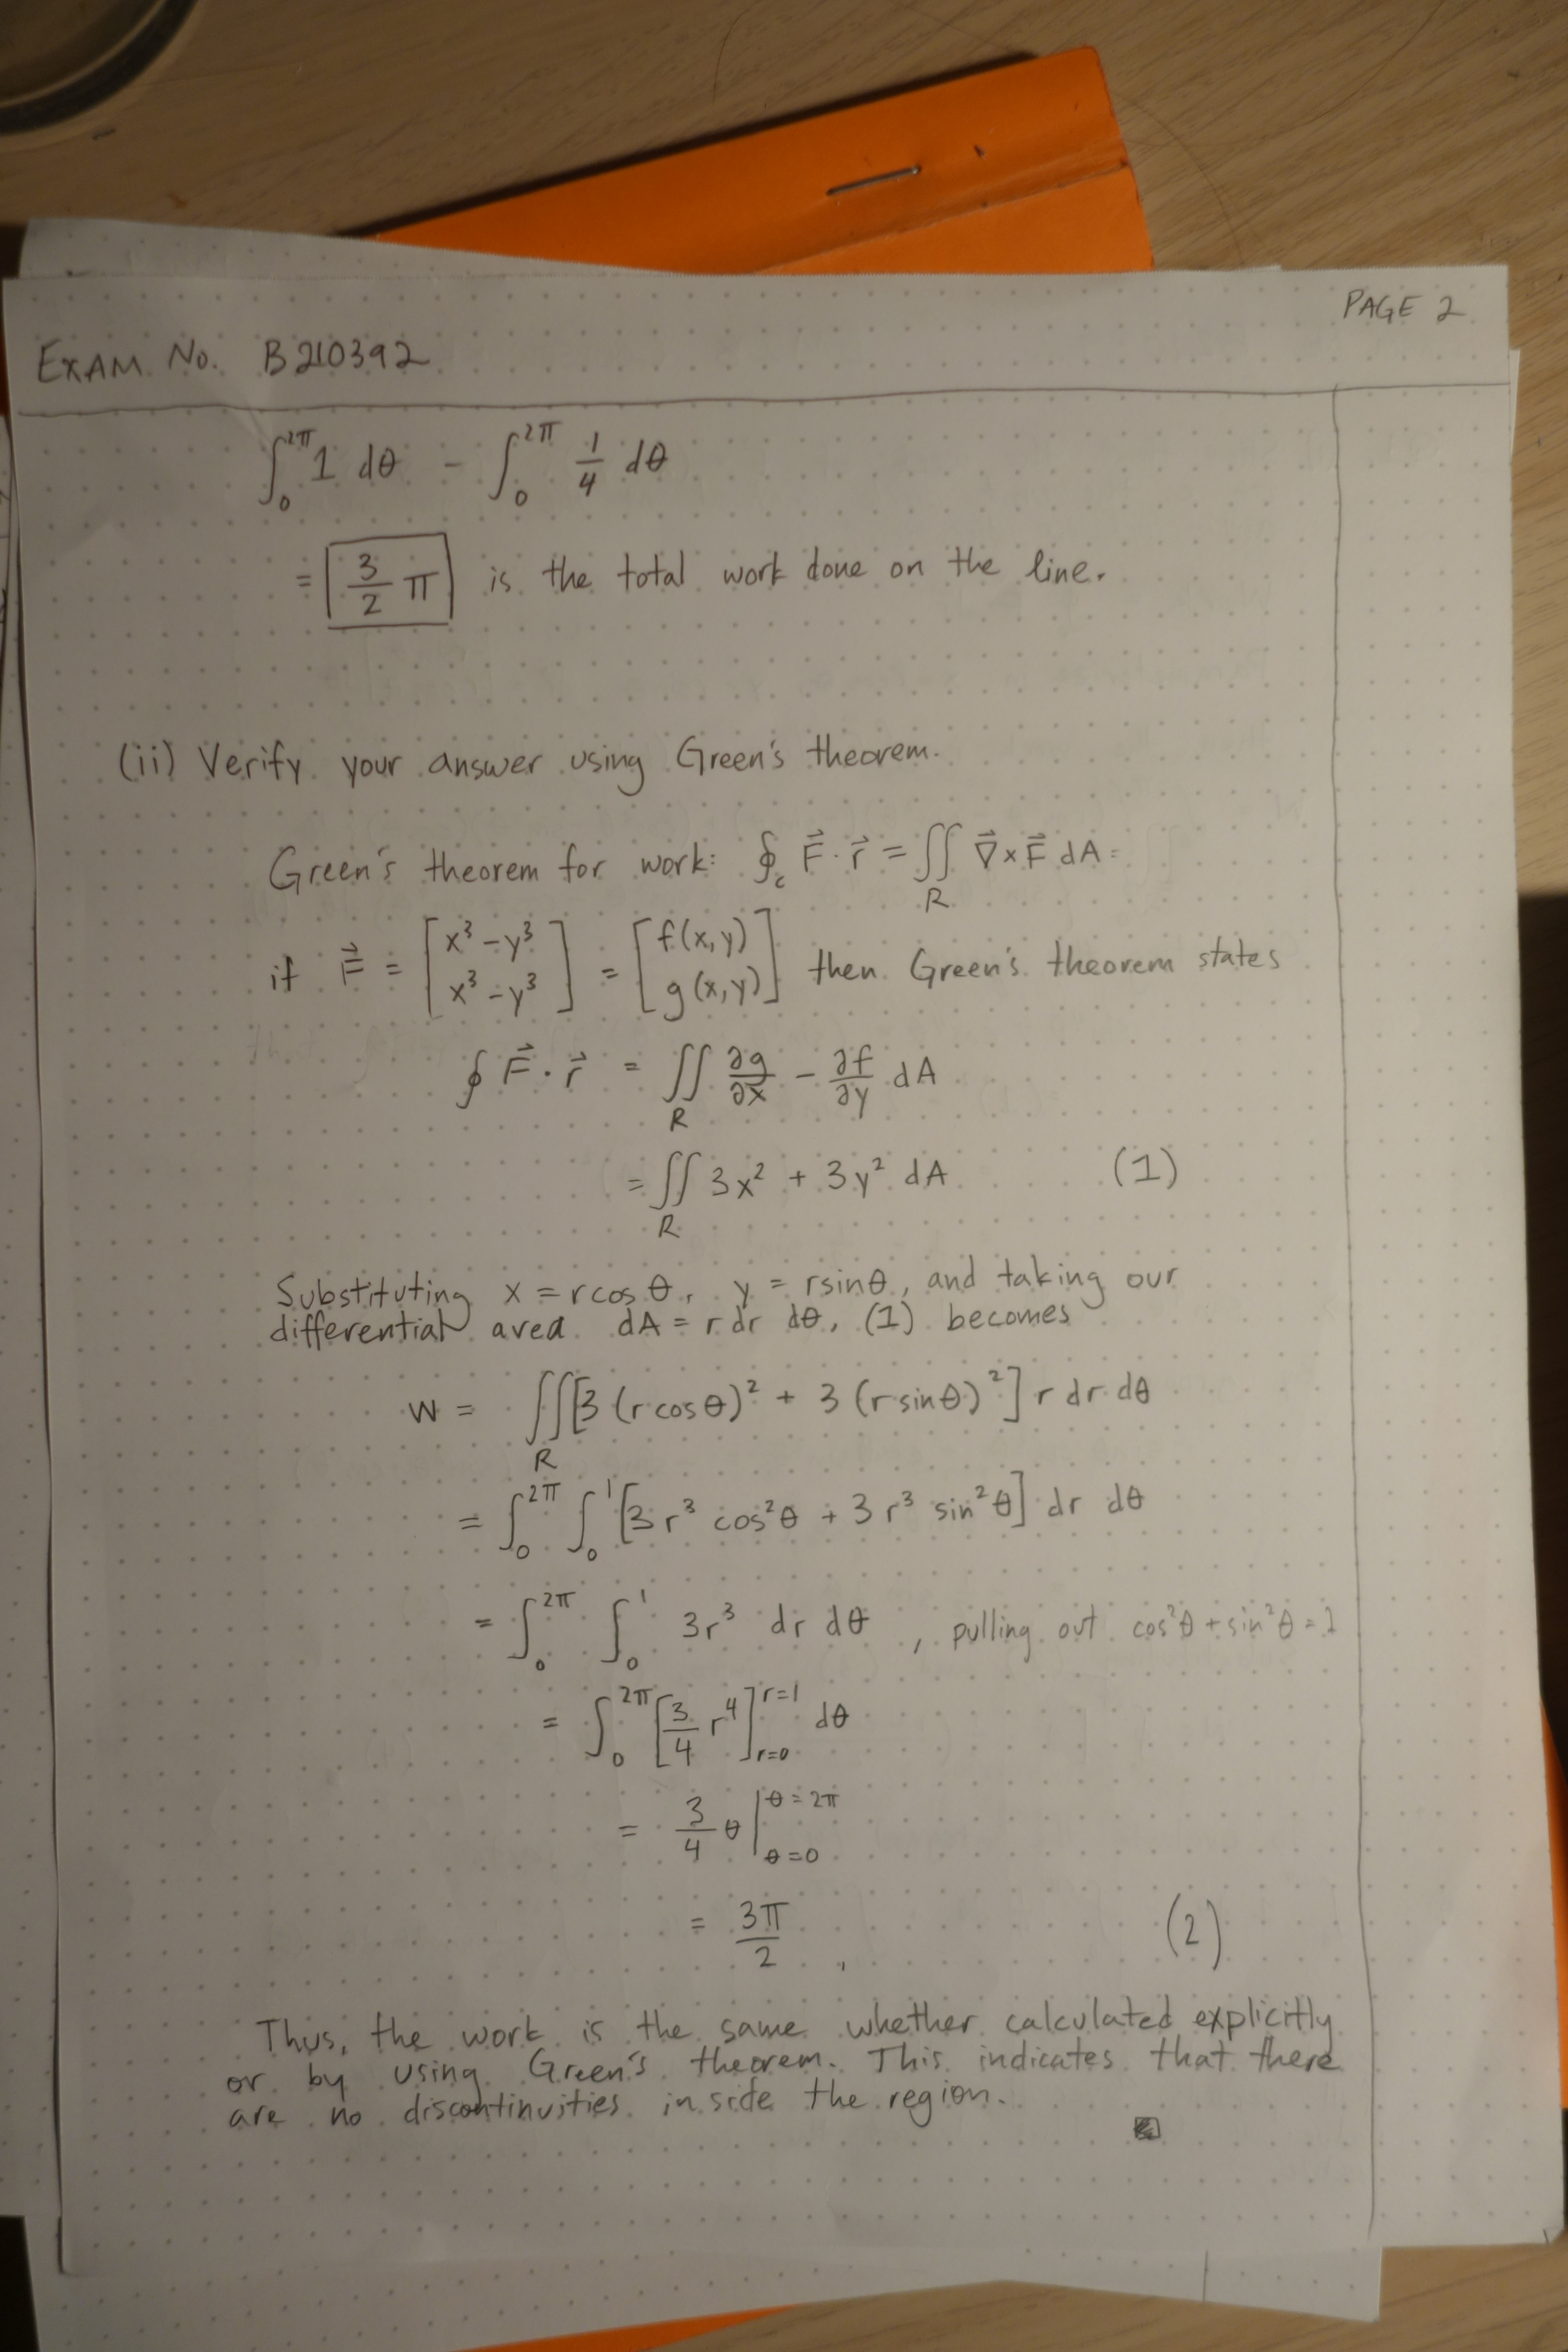 PAGE 2
EXAM No. B210392
∫₀^2π 1 dθ - ∫₀^2π 1/4 dθ
= 3/2 π is the total work done on the line.
(ii) Verify your answer using Green's theorem.
Green's theorem for work: ∮_c F⃗ · r⃗ = ∬_R ∇⃗ × F⃗ dA =
if F⃗ = [x³ - y³; x³ - y³] = [f(x,y); g(x,y)] then Green's theorem states
∮ F⃗ · r⃗ = ∬_R ∂g/∂x - ∂f/∂y dA
= ∬_R 3x² + 3y² dA (1)
Substituting x = r cos θ, y = r sin θ, and taking our
differential area dA = r dr dθ, (1) becomes
W = ∬_R [3 (r cos θ)² + 3 (r sin θ)²] r dr dθ
= ∫₀^2π ∫₀^1 [3 r³ cos²θ + 3 r³ sin²θ] dr dθ
= ∫₀^2π ∫₀^1 3r³ dr dθ , pulling out cos²θ + sin²θ = 1
= ∫₀^2π [3/4 r⁴]_{r=0}^{r=1} dθ
= 3/4 θ |_{θ=0}^{θ=2π}
= 3π/2 , (2)
Thus, the work is the same whether calculated explicitly
or by using Green's theorem. This indicates that there
are no discontinuities inside the region.